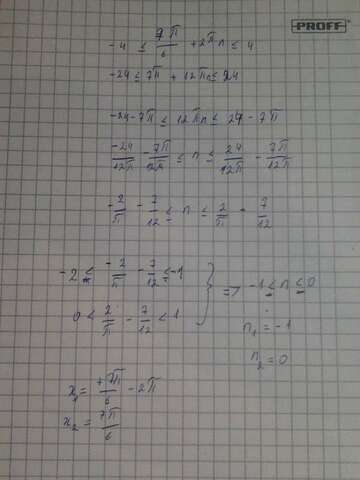 PROFF
-4 ≤ 7π/6 + 2πn ≤ 4
-24 ≤ 7π + 12πn ≤ 24
-24 - 7π ≤ 12πn ≤ 24 - 7π
-24/12π - 7π/12π ≤ n ≤ 24/12π - 7π/12π
-2/π - 7/12 ≤ n ≤ 2/π - 7/12
-2 ≤ -2/π - 7/12 ≤ -1
0 < 2/π - 7/12 < 1 } => -1 ≤ n ≤ 0
n₁ = -1
n₂ = 0
x₁ = +7π/6 - 2π
x₂ = 7π/6